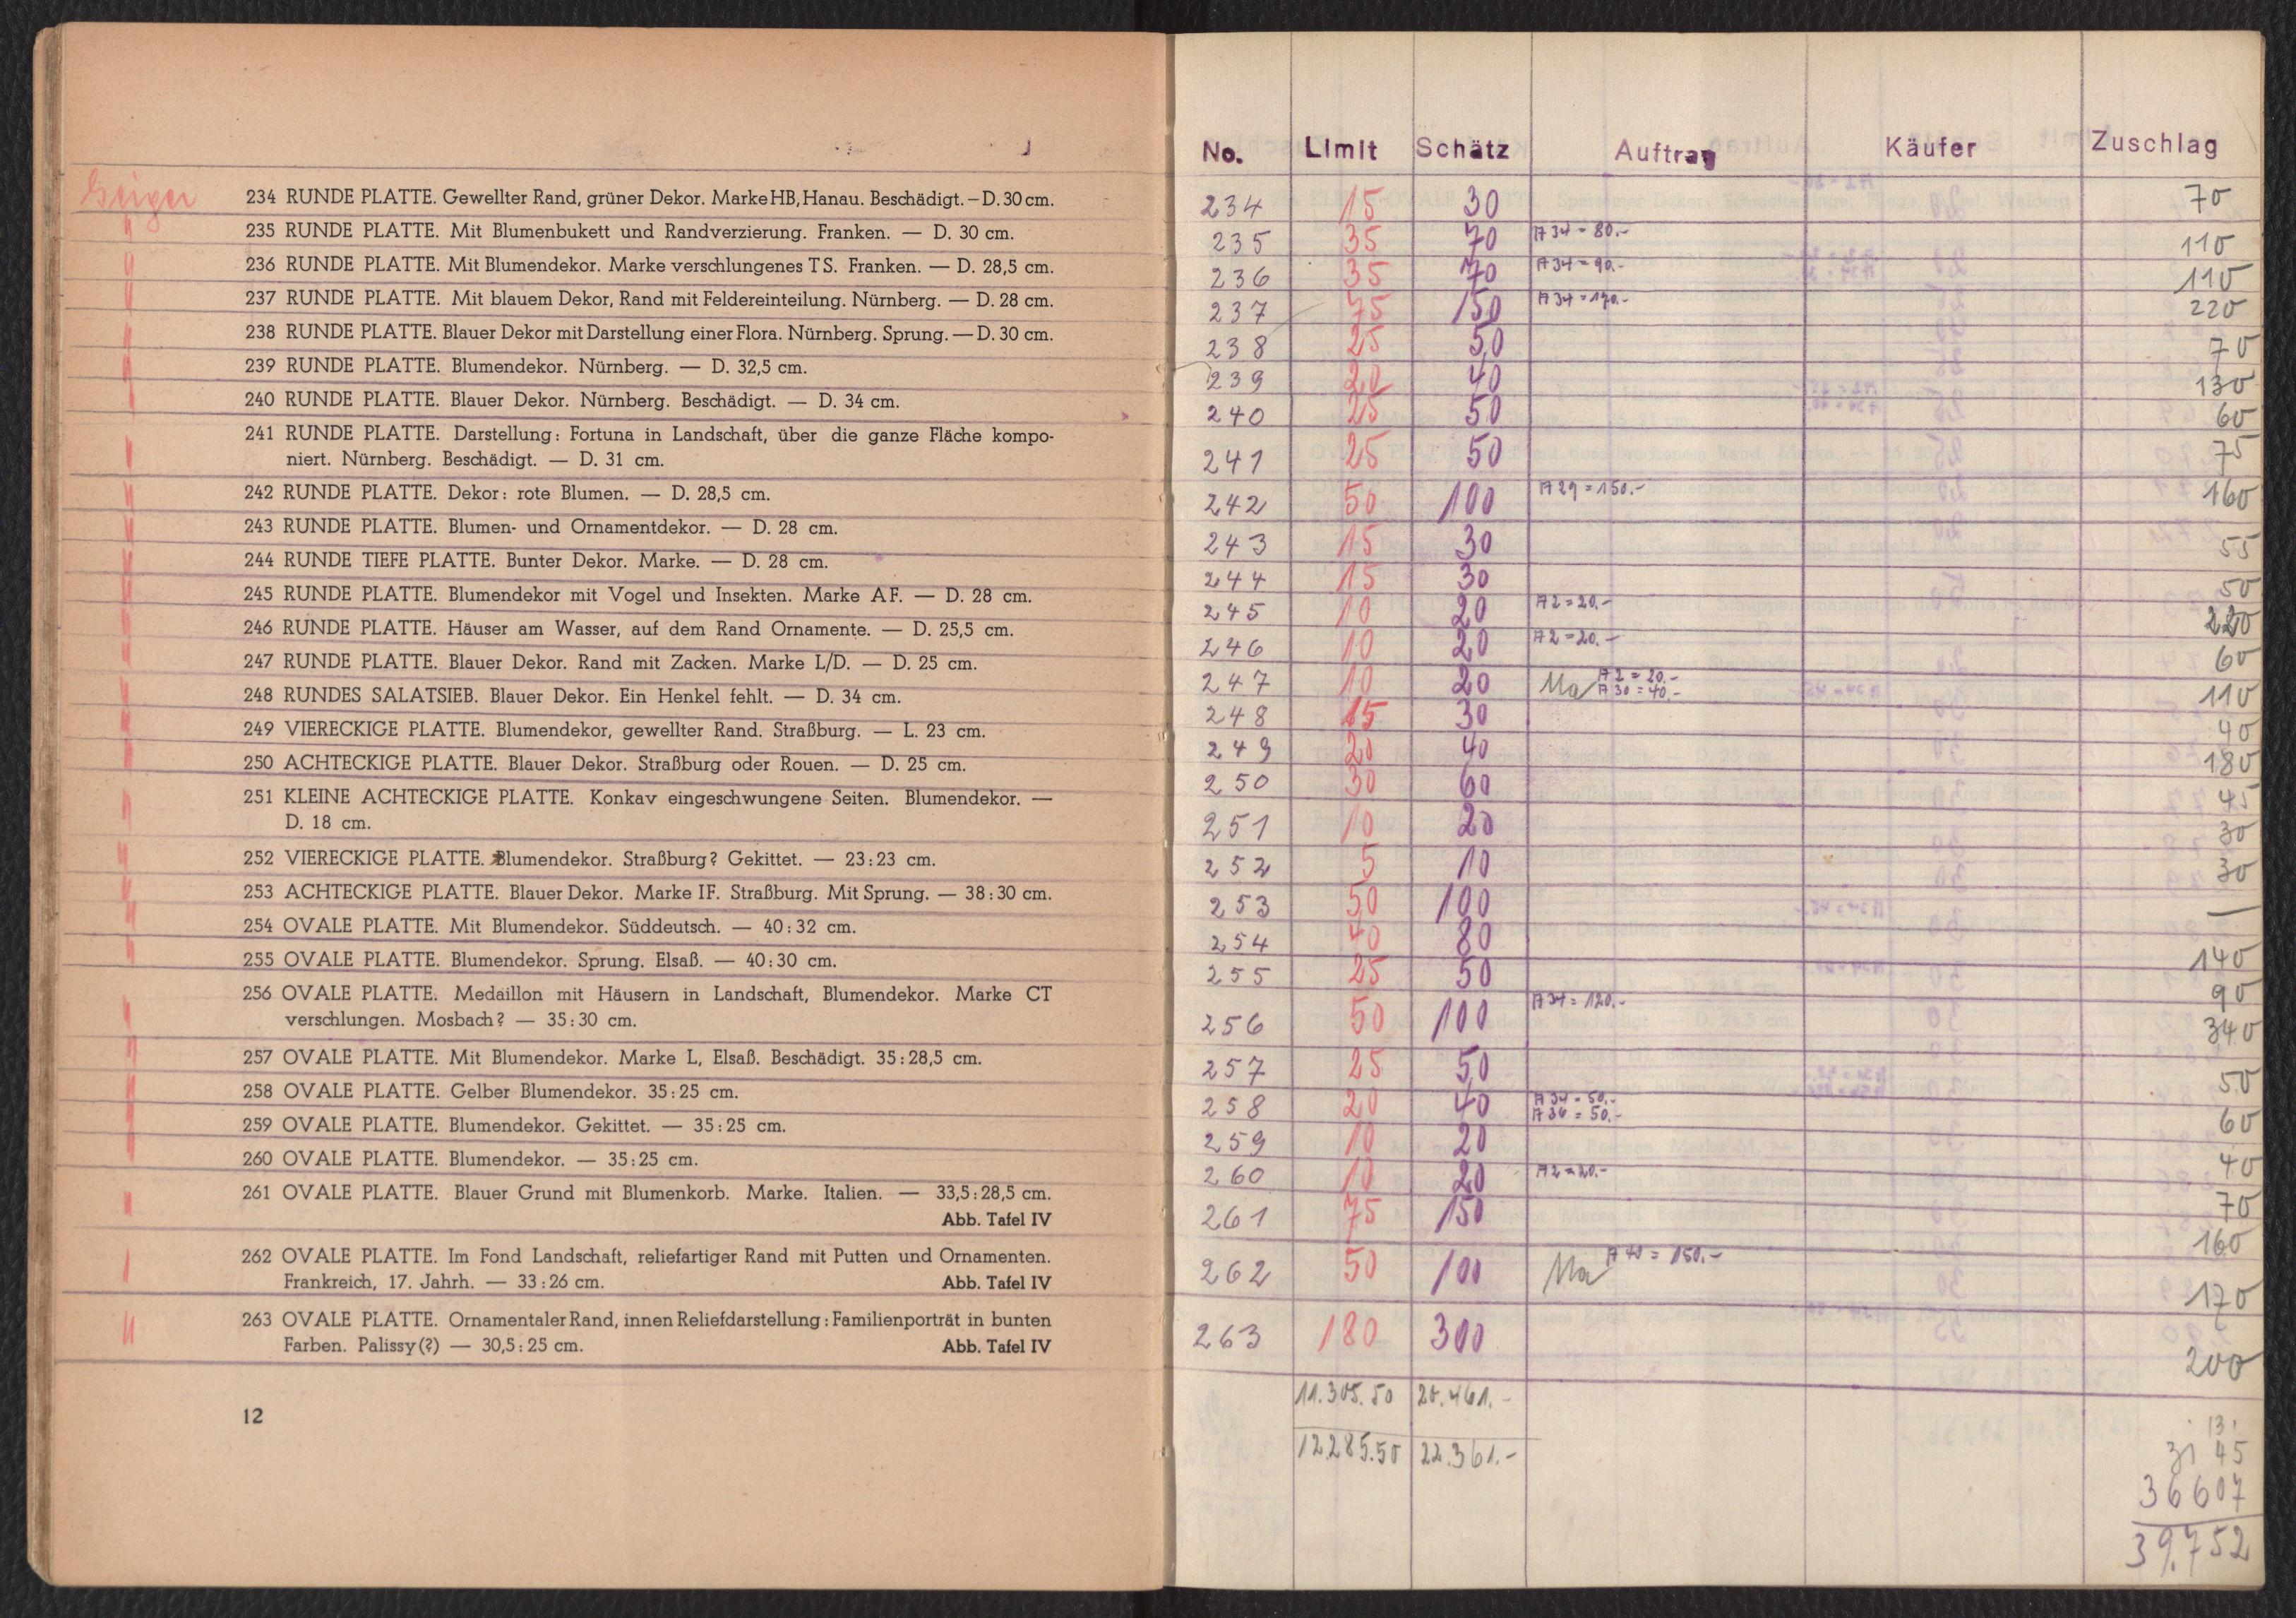 Geiger
234 RUNDE PLATTE. Gewellter Rand, grüner Dekor. Marke HB, Hanau. Beschädigt. – D. 30 cm.
235 RUNDE PLATTE. Mit Blumenbukett und Randverzierung. Franken. — D. 30 cm.
236 RUNDE PLATTE. Mit Blumendekor. Marke verschlungenes TS. Franken. — D. 28,5 cm.
237 RUNDE PLATTE. Mit blauem Dekor, Rand mit Feldereinteilung. Nürnberg. — D. 28 cm.
238 RUNDE PLATTE. Blauer Dekor mit Darstellung einer Flora. Nürnberg. Sprung. — D. 30 cm.
239 RUNDE PLATTE. Blumendekor. Nürnberg. — D. 32,5 cm.
240 RUNDE PLATTE. Blauer Dekor. Nürnberg. Beschädigt. — D. 34 cm.
241 RUNDE PLATTE. Darstellung: Fortuna in Landschaft, über die ganze Fläche kompo-
niert. Nürnberg. Beschädigt. — D. 31 cm.
242 RUNDE PLATTE. Dekor: rote Blumen. — D. 28,5 cm.
243 RUNDE PLATTE. Blumen- und Ornamentdekor. — D. 28 cm.
244 RUNDE TIEFE PLATTE. Bunter Dekor. Marke. — D. 28 cm.
245 RUNDE PLATTE. Blumendekor mit Vogel und Insekten. Marke AF. — D. 28 cm.
246 RUNDE PLATTE. Häuser am Wasser, auf dem Rand Ornamente. — D. 25,5 cm.
247 RUNDE PLATTE. Blauer Dekor. Rand mit Zacken. Marke L/D. — D. 25 cm.
248 RUNDES SALATSIEB. Blauer Dekor. Ein Henkel fehlt. — D. 34 cm.
249 VIERECKIGE PLATTE. Blumendekor, gewellter Rand. Straßburg. — L. 23 cm.
250 ACHTECKIGE PLATTE. Blauer Dekor. Straßburg oder Rouen. — D. 25 cm.
251 KLEINE ACHTECKIGE PLATTE. Konkav eingeschwungene Seiten. Blumendekor. —
D. 18 cm.
252 VIERECKIGE PLATTE. Blumendekor. Straßburg? Gekittet. — 23:23 cm.
253 ACHTECKIGE PLATTE. Blauer Dekor. Marke IF. Straßburg. Mit Sprung. — 38:30 cm.
254 OVALE PLATTE. Mit Blumendekor. Süddeutsch. — 40:32 cm.
255 OVALE PLATTE. Blumendekor. Sprung. Elsaß. — 40:30 cm.
256 OVALE PLATTE. Medaillon mit Häusern in Landschaft, Blumendekor. Marke CT
verschlungen. Mosbach? — 35:30 cm.
257 OVALE PLATTE. Mit Blumendekor. Marke L, Elsaß. Beschädigt. 35:28,5 cm.
258 OVALE PLATTE. Gelber Blumendekor. 35:25 cm.
259 OVALE PLATTE. Blumendekor. Gekittet. — 35:25 cm.
260 OVALE PLATTE. Blumendekor. — 35:25 cm.
261 OVALE PLATTE. Blauer Grund mit Blumenkorb. Marke. Italien. — 33,5:28,5 cm.
Abb. Tafel IV
262 OVALE PLATTE. Im Fond Landschaft, reliefartiger Rand mit Putten und Ornamenten.
Frankreich, 17. Jahrh. — 33:26 cm. Abb. Tafel IV
263 OVALE PLATTE. Ornamentaler Rand, innen Reliefdarstellung: Familienporträt in bunten
Farben. Palissy(?) — 30,5:25 cm. Abb. Tafel IV
12
No. Limit Schätz Auftrag Käufer Zuschlag
234 15 30 70
235 35 70 A34 = 80.- 110
236 35 70 A34 = 90.- 110
237 75 150 A34 = 170.- 220
238 25 50 70
239 20 40 130
240 25 50 60
241 25 50 75
242 50 100 A29 = 150.- 160
243 15 30 55
244 15 30 50
245 10 20 A2 = 20.- 220
246 10 20 A2 = 20.- 60
247 10 20 Ma A2 = 20.- 110
A30 = 40.-
248 15 30 40
249 20 40 180
250 30 60 45
251 10 20 30
252 5 10 30
253 50 100 —
254 40 80 140
255 25 50 90
256 50 100 A34 = 120.- 340
257 25 50 50
258 20 40 A34 = 50.- 60
A36 = 50.-
259 10 20 40
260 10 20 A2 = 20.- 70
261 75 150 160
262 50 100 Ma A40 = 150.- 170
263 180 300 200
11.305.50 20.461.-
12285.50 22.361.-
13
31 45
36607
39.752